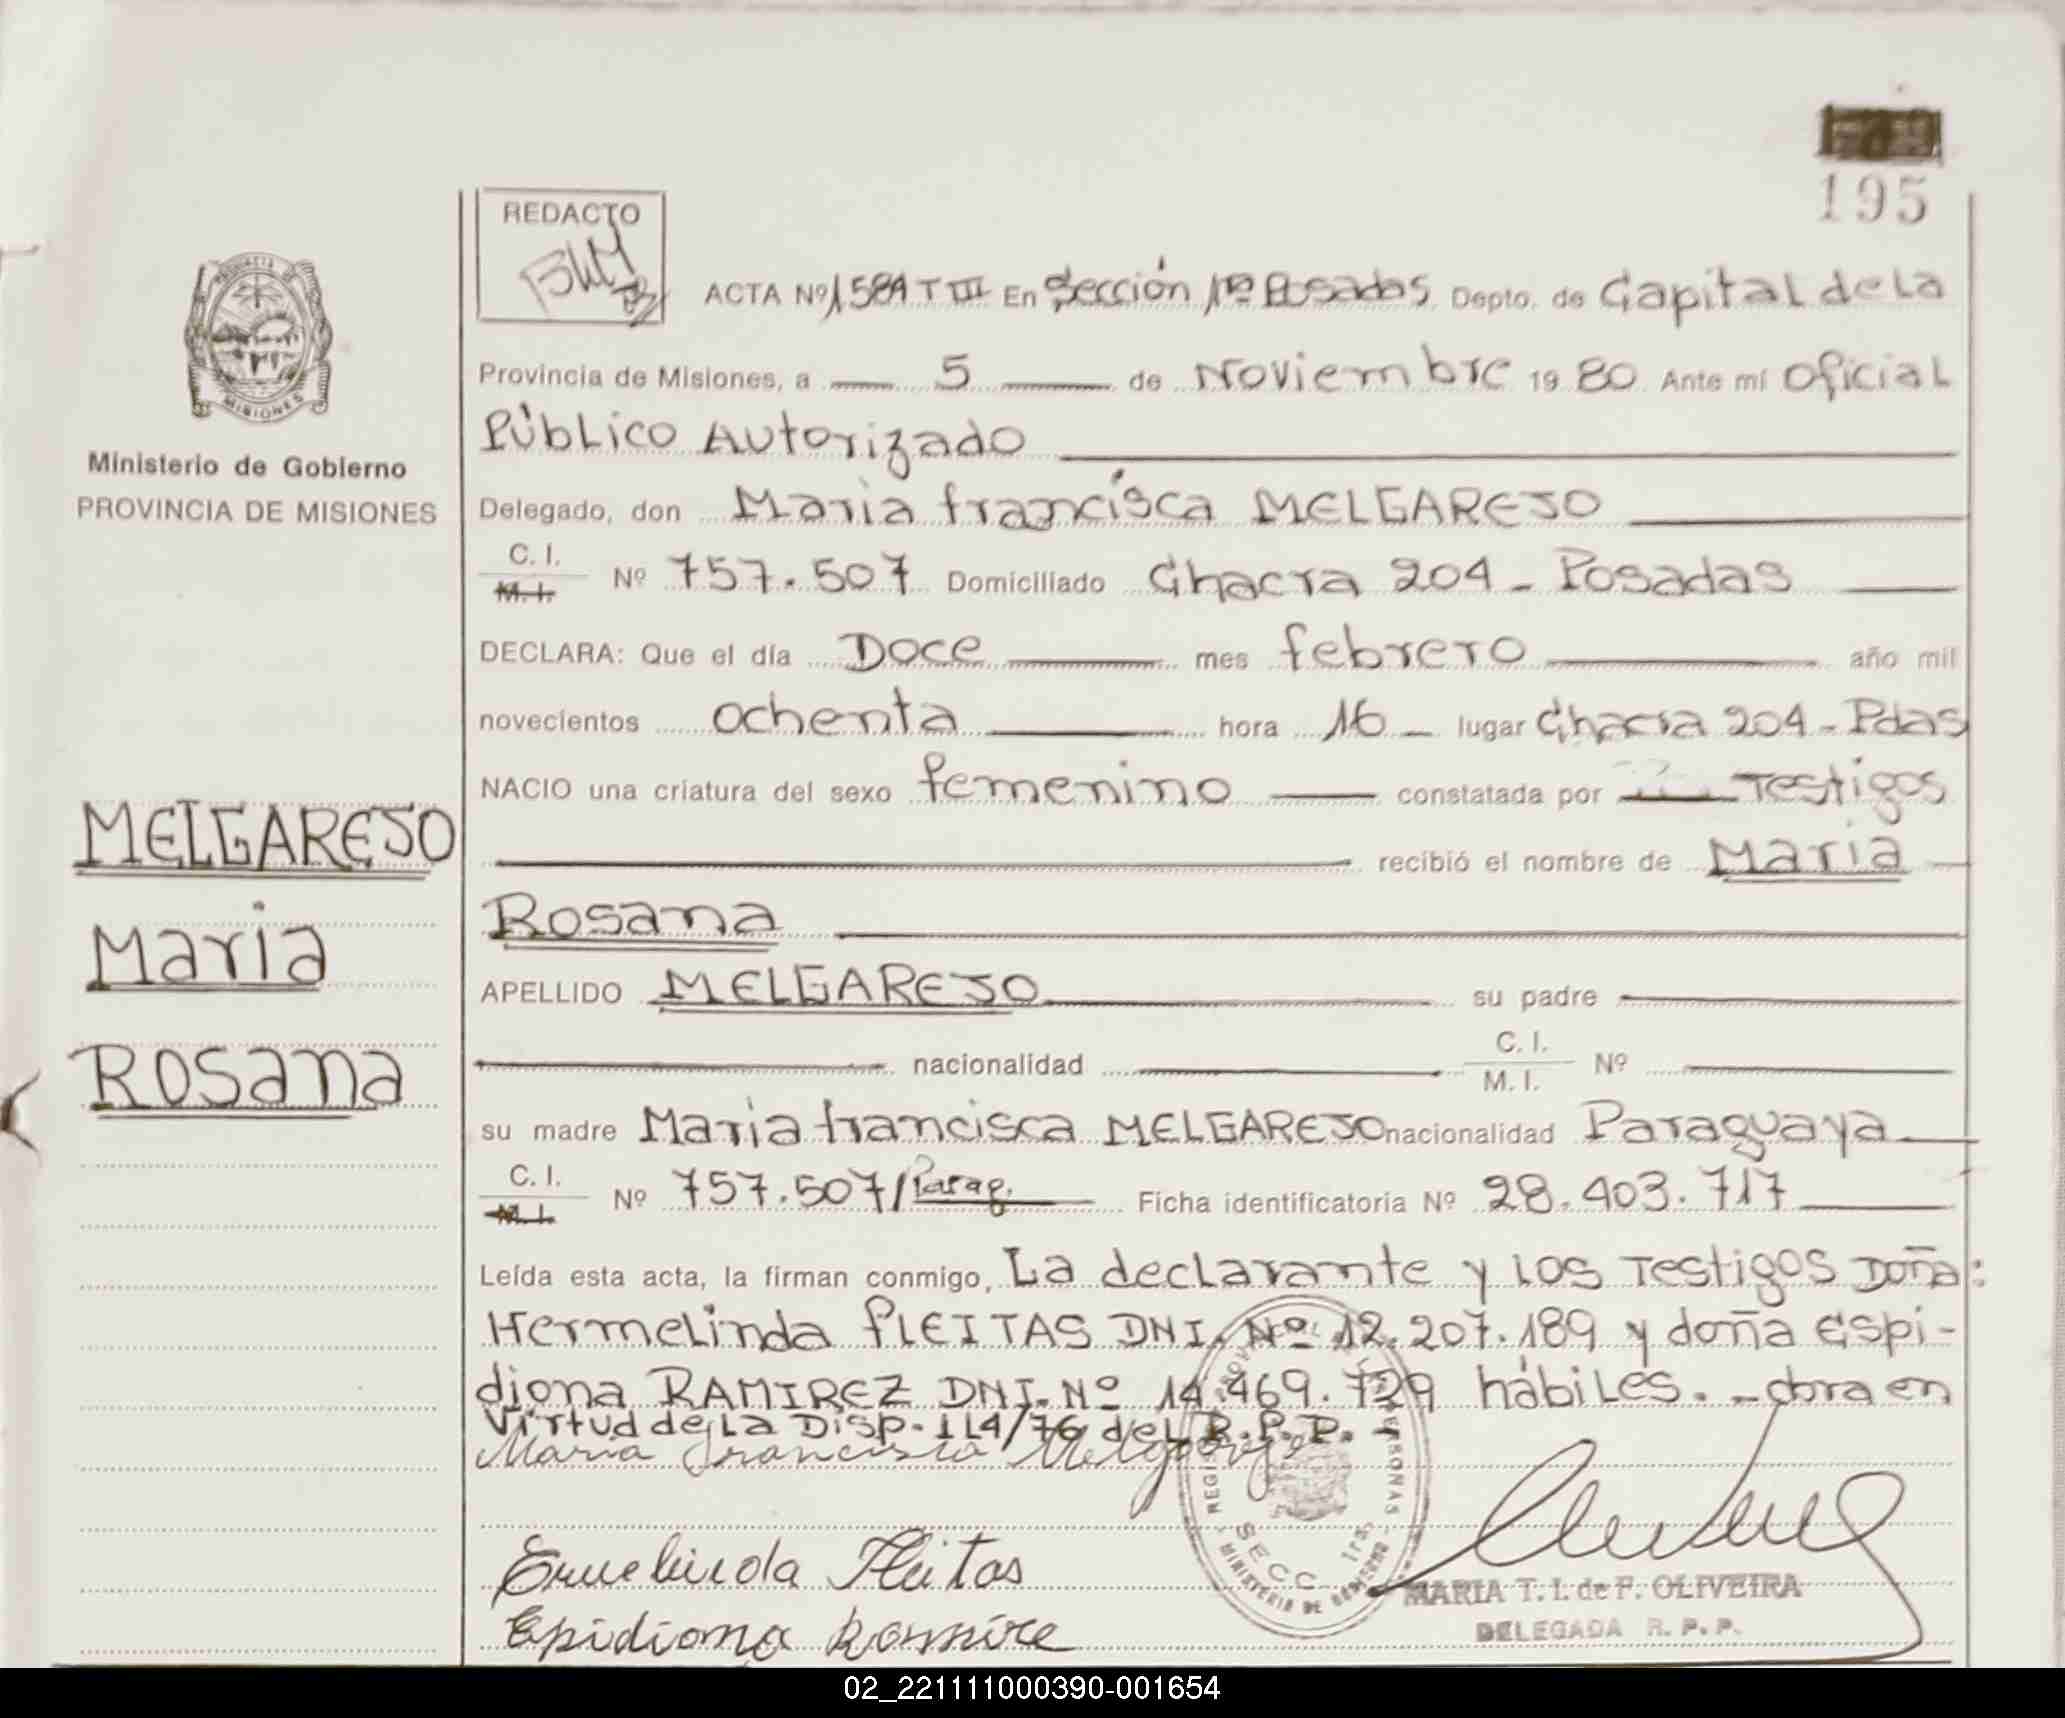 195
REDACTO
ACTA Nº 1584 T III En Sección 1ra Posadas Depto. de Capital de La
Provincia de Misiones, a 5 de Noviembre 1980 Ante mí Oficial
Público Autorizado
MISIONES
Ministerio de Gobierno
PROVINCIA DE MISIONES
Delegado, don Maria francisca MELGAREJO
C. I.
M. I. Nº 757.507 Domiciliado Chacra 204 - Posadas
DECLARA: Que el día Doce mes febrero año mil
novecientos ochenta hora 16 lugar Chacra 204 - Pdas
NACIO una criatura del sexo femenino constatada por Testigos
recibió el nombre de Maria
Rosana
MELGAREJO
Maria
Rosana
APELLIDO MELGAREJO su padre
nacionalidad C. I.
M. I. Nº
su madre Maria francisca MELGAREJO nacionalidad Paraguaya
C. I.
M. I. Nº 757.507/Parag. Ficha identificatoria Nº 28.403.717
Leída esta acta, la firman conmigo, La declarante y los Testigos Doña:
Hermelinda fLEITAS DNI. Nº 12.207.189 y doña Espi-
diona RAMIREZ DNI. Nº 14.469.729 hábiles. - obra en
Virtud de La Disp. 114/76 del R.P.P. -
Maria Francisca Melgarejo
Ermelinda Fleitas
Epidiona Ramire
SECC. 1ra.
MINISTERIO DE GOBIERNO
MARIA T. I. de F. OLIVEIRA
DELEGADA R. P. P.
02_221111000390-001654